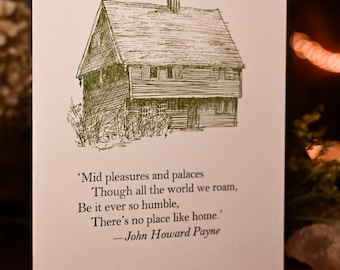 ‘Mid pleasures and palaces
Though all the world we roam,
Be it ever so humble,
There’s no place like home.’
—John Howard Payne